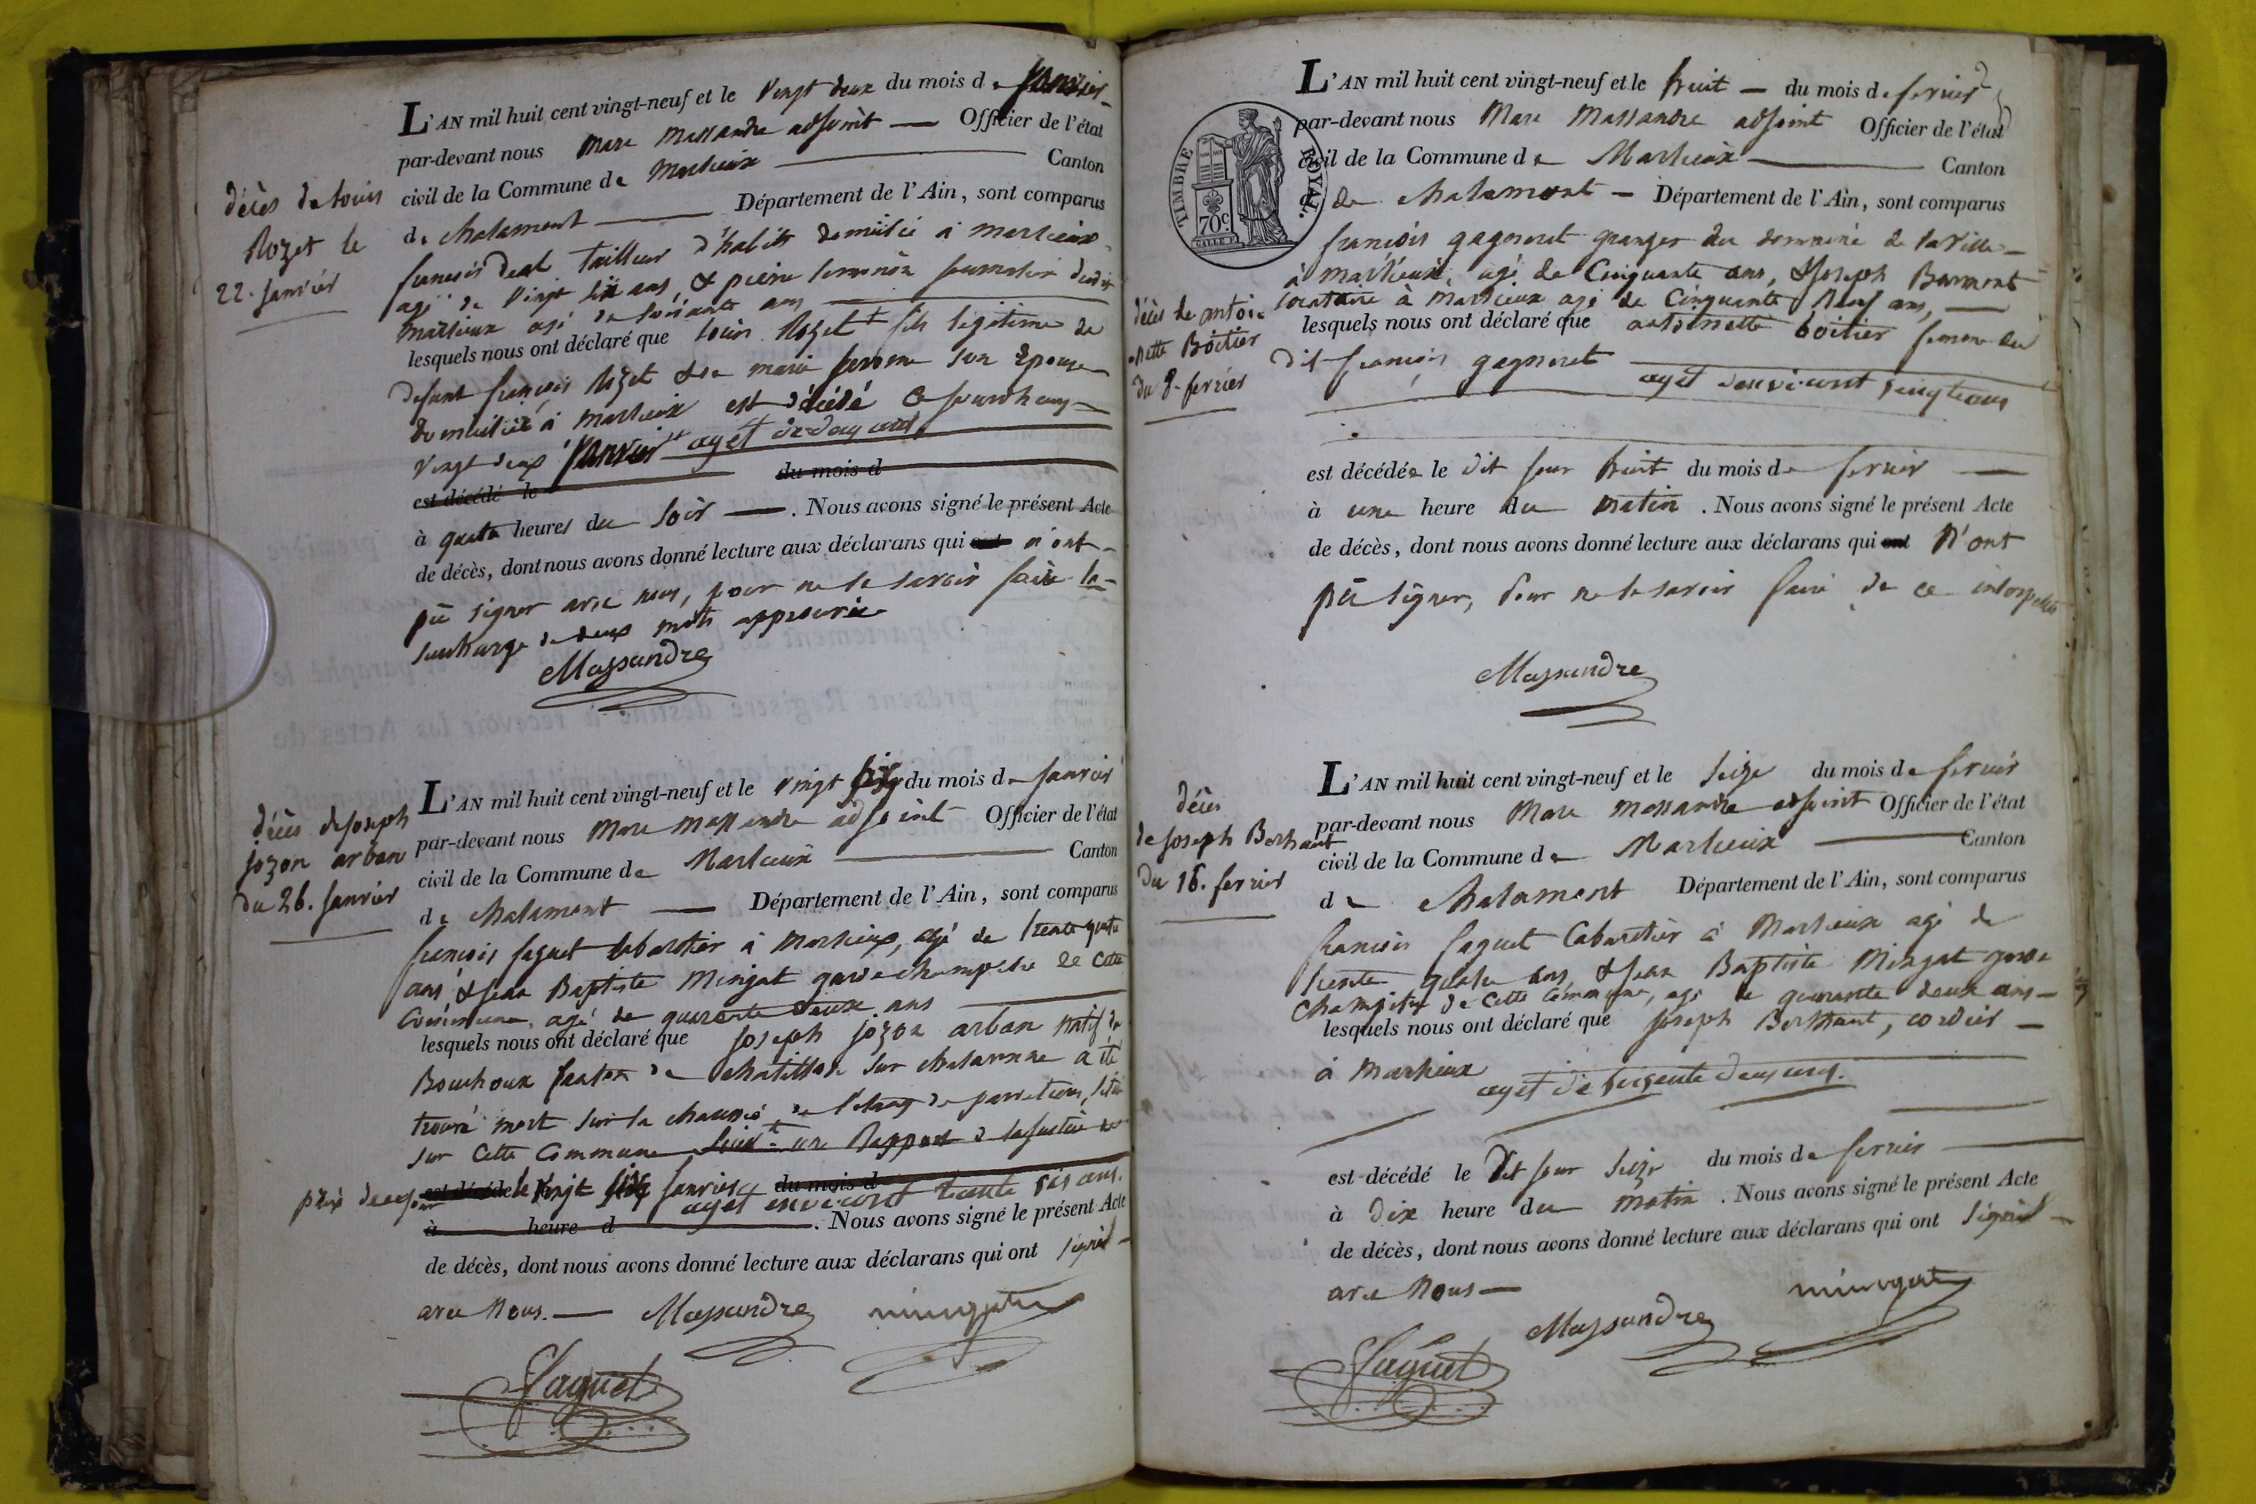 décès de louis
Rozet le
22. janvier
L'AN mil huit cent vingt-neuf et le vingt deux du mois de janvier
par-devant nous Marc Massandre adjoint Officier de l'état
civil de la Commune de Marlieux Canton
de chalamont Département de l'Ain, sont comparus
françois tailleur d'habits domicilié à marlieux
agé de vingt six ans, & pierre journalier dudit
marlieux agé de soixante ans
lesquels nous ont déclaré que louis Rozet fils légitime de
défunt françois Rozet & de marie son Epouse
domicilié à marlieux est décédé ce jourdhuy
vingt deux janvier ayet de
est décédé le du mois d
à quatre heures du soir . Nous avons signé le présent Acte
de décès, dont nous avons donné lecture aux déclarans qui ont n'ont
pu signer avec nous, pour ne le savoir faire la
surcharge de deux mots approuvée
Massandre
décès de joseph
jozon arban
du 26. janvier
L'AN mil huit cent vingt-neuf et le vingt six du mois de janvier
par-devant nous Marc Massandre adjoint Officier de l'état
civil de la Commune de Marlieux Canton
de chalamont Département de l'Ain, sont comparus
françois faguet cabaretier à Marlieux, agé de trente quatre
ans, & jean Baptiste Mingat garde champetre de cette
Commune, agé de quarante deux ans
lesquels nous ont déclaré que joseph jozon arban natif de
Bouchoux de chatillon sur chalaronne a été
trouvé mort sur la chaussé de l'étang de situé
sur cette Commune suivt. un Rapport de la justice de
paix de ce jour est décédé le vingt six janvier du mois d
ayet environt trante sis ans.
à heure d . Nous avons signé le présent Acte
de décès, dont nous avons donné lecture aux déclarans qui ont signé
avec Nous. Massandre mingat
Faguet
TIMBRE ROYAL.
70c
L'AN mil huit cent vingt-neuf et le huit du mois de fevrier
par-devant nous Marc Massandre adjoint Officier de l'état
civil de la Commune de Marlieux Canton
de chalamont Département de l'Ain, sont comparus
françois gagneret granger du domaine de la ville
à marlieux, agé de Cinquante ans, & joseph
locataire à Marlieux agé de Cinquante Neuf ans,
décès de antoi
nette Boitier
du 8. fevrier
lesquels nous ont déclaré que antoinette boitier femme du
dit françois gagneret
ayet environt
est décédée le dit jour huit du mois de fevrier
à une heure du matin . Nous avons signé le présent Acte
de décès, dont nous avons donné lecture aux déclarans qui ont N'ont
pu signer, pour ne le savoir faire de ce interpellés
Massandre
décès
de joseph Berthaut
du 16. fevrier
L'AN mil huit cent vingt-neuf et le seize du mois de fevrier
par-devant nous Marc Massandre adjoint Officier de l'état
civil de la Commune de Marlieux Canton
de chalamont Département de l'Ain, sont comparus
françois faguet Cabaretier à Marlieux agé de
trente quatre ans, & jean Baptiste Mingat garde
Champetre de cette Commune, agé de quarante deux ans
lesquels nous ont déclaré que joseph Berthaut, cordier
à Marlieux
ayet de
est décédé le dit jour seize du mois de fevrier
à dix heure du matin . Nous avons signé le présent Acte
de décès, dont nous avons donné lecture aux déclarans qui ont signé
avec Nous mingat
Massandre
Faguet